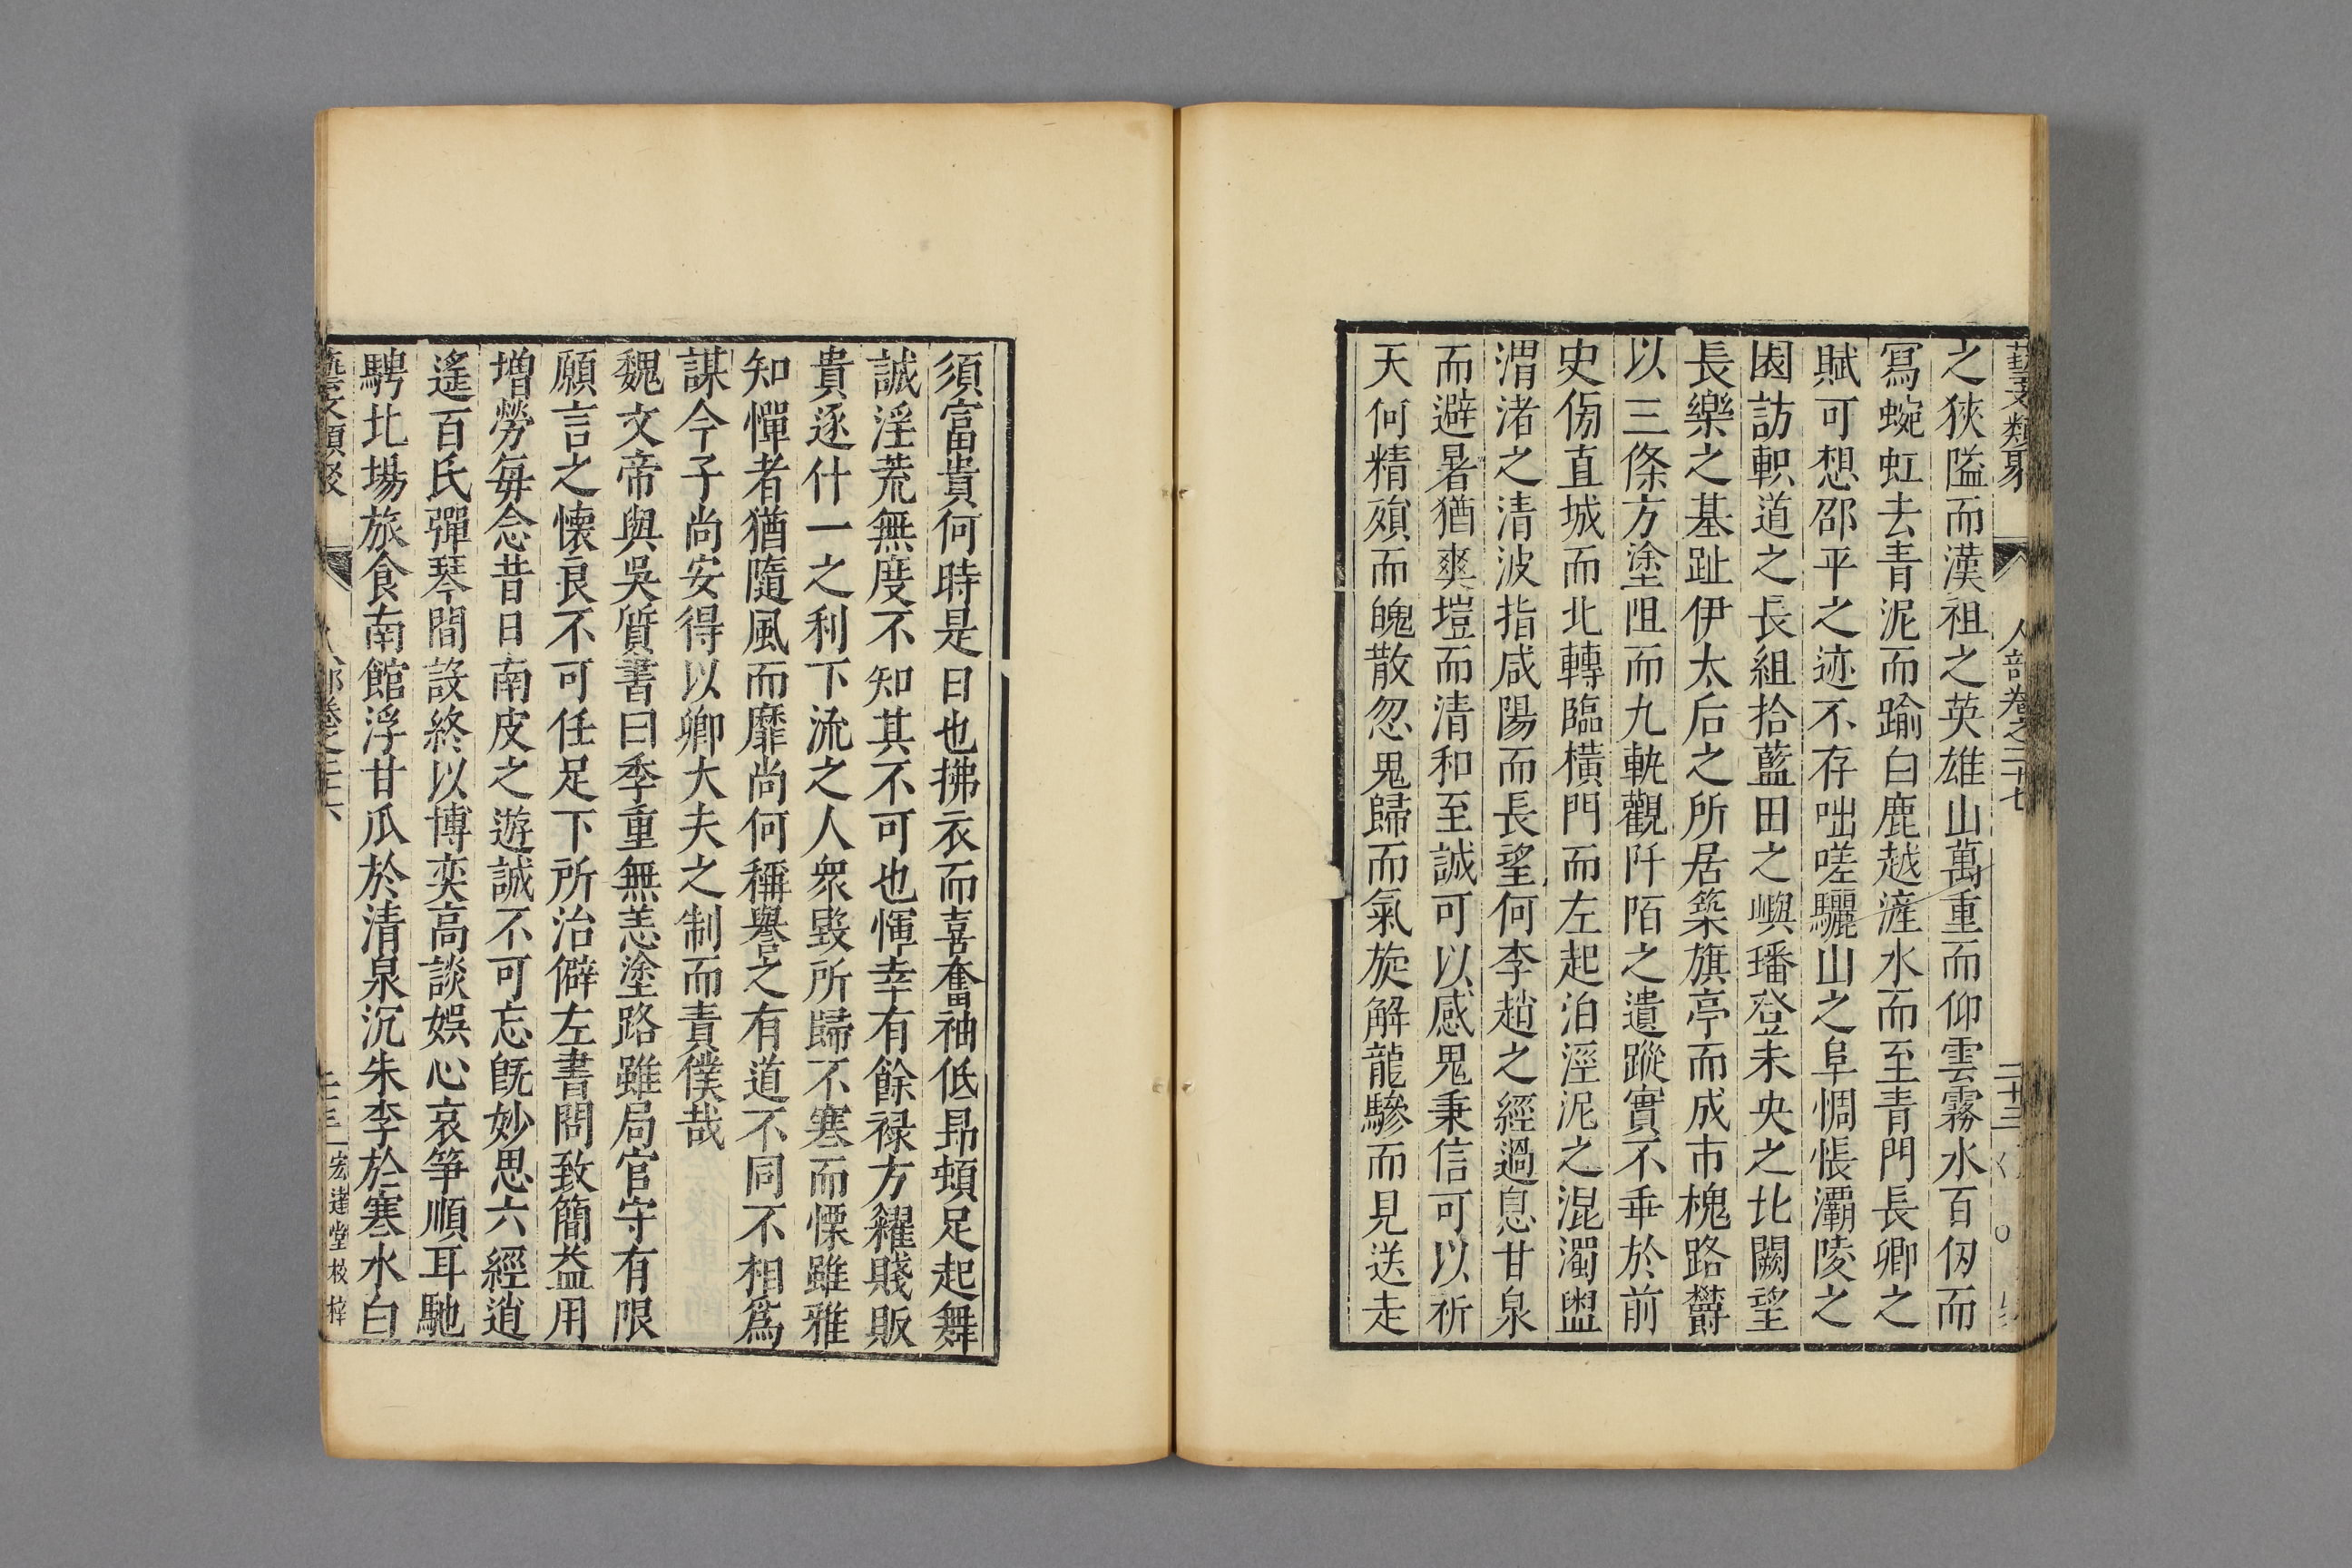 藝文類聚 人部卷之二十七 二十三
之狹隘而漢祖之英雄山萬重而仰雲霧水百仭而
寫蜿虹去青泥而踰白鹿越滻水而至青門長卿之
賦可想邵平之迹不存咄嗟驪山之阜惆悵灞陵之
園訪軹道之長組拾藍田之嶼璠登未央之北闕望
長樂之基趾伊太后之所居築旗亭而成市槐路欝
以三條方塗阻而九軌觀阡陌之遺蹤實不垂於前
史傍直城而北轉臨橫門而左起泊涇泥之混濁盥
渭渚之清波指咸陽而長望何李趙之經過息甘泉
而避暑猶爽塏而清和至誠可以感鬼秉信可以祈
天何精殞而魄散忽鬼歸而氣旋解龍驂而見送走
須富貴何時是日也拂衣而喜奮袖低昂頓足起舞
誠淫荒無度不知其不可也惲幸有餘禄方糴賤販
貴逐什一之利下流之人衆毀所歸不寒而慄雖雅
知惲者猶隨風而靡尚何稱譽之有道不同不相爲
謀今子尚安得以卿大夫之制而責僕哉
魏文帝與吳質書曰季重無恙塗路雖局官守有限
願言之懷良不可任足下所治僻左書問致簡益用
增勞每念昔日南皮之遊誠不可忘旣妙思六經逍
遙百氏彈琴間設終以博奕高談娛心哀箏順耳馳
騁北場旅食南館浮甘瓜於清泉沉朱李於寒水白
藝文類聚 人部卷之二十六 宏達堂校梓